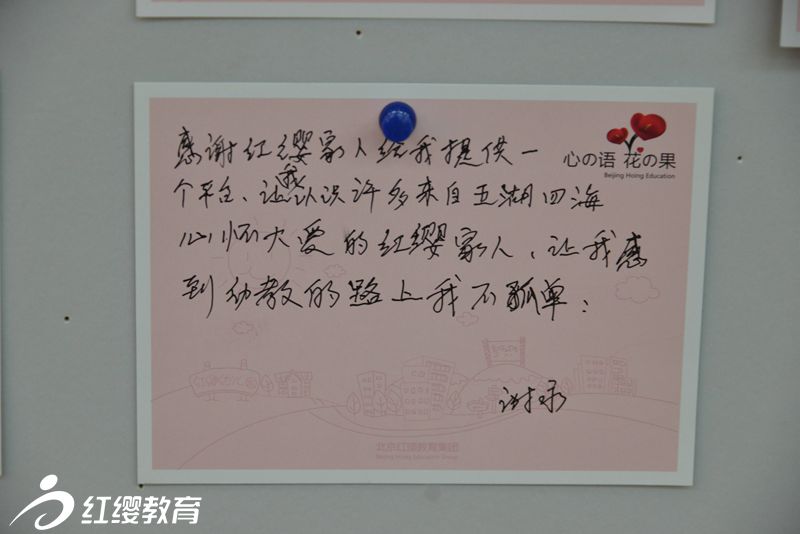 心の语 花の果
Beijing Hoing Education
感谢红缨家人给我提供一
个平台、让我认识许多来自五湖四海
心怀大爱的红缨家人，让我感
到幼教的路上我不孤单；
北京红缨教育集团
Beijing Hoing Education Group
红缨教育